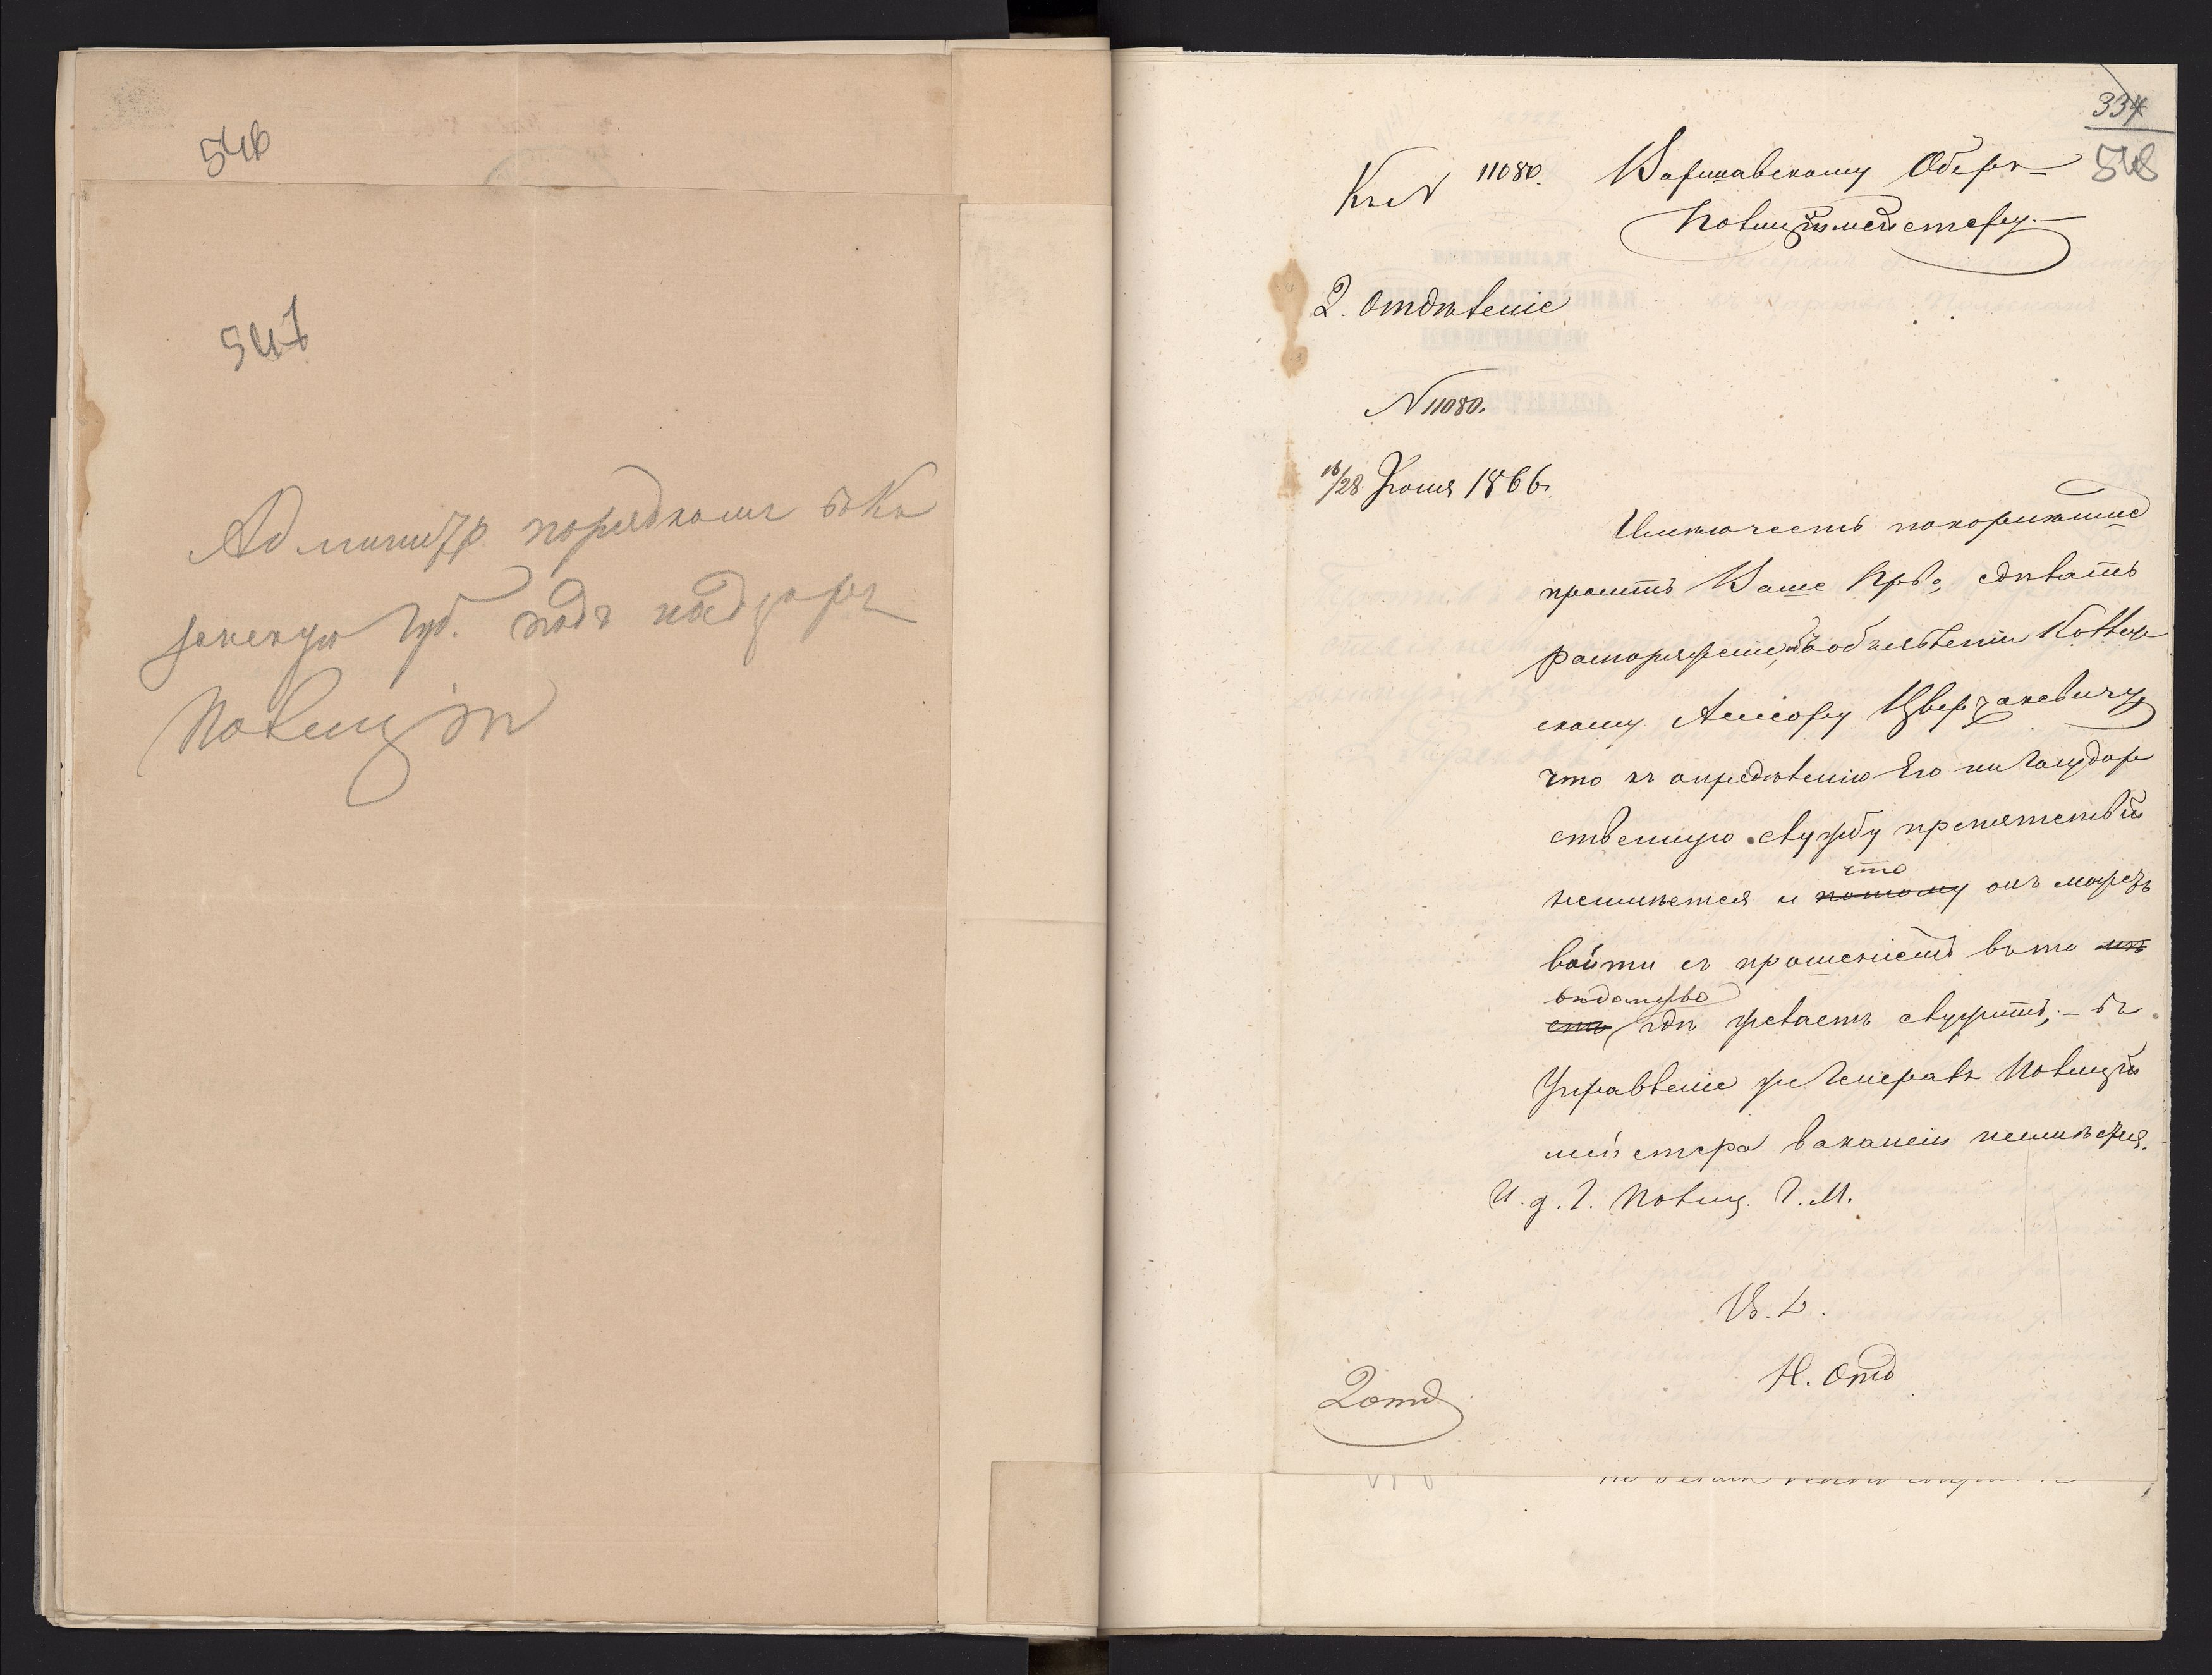 546
547
Админитр порядкомъ въ Ка
занскую Губ. подъ надзоръ
Полиціи
334
548
Къ N 11080. Варшавскому Оберъ-
Полицiймейстеру.
2. Отдѣленіе
N 11080.
16/28 Іюня 1866.
Имѣю честь покорнѣйше
просить Ваше Пр-во, сдѣлать
распоряженіе, объ объявленіи Коллеж
скому Ассесору Цверзакевичу
что къ опредѣленію Его на Государ
ственную службу препятствій
неимѣется и потому что онъ можетъ
войти съ прошеніемъ въ то мѣ
вѣдомство
сто, гдѣ желаетъ служить, - въ
Управленіе же Генералъ Полицій
мейстера вакансіи неимѣется.
И. д. Г. Полиц. Г. М.
В. L.
Н. Отд
2 отд